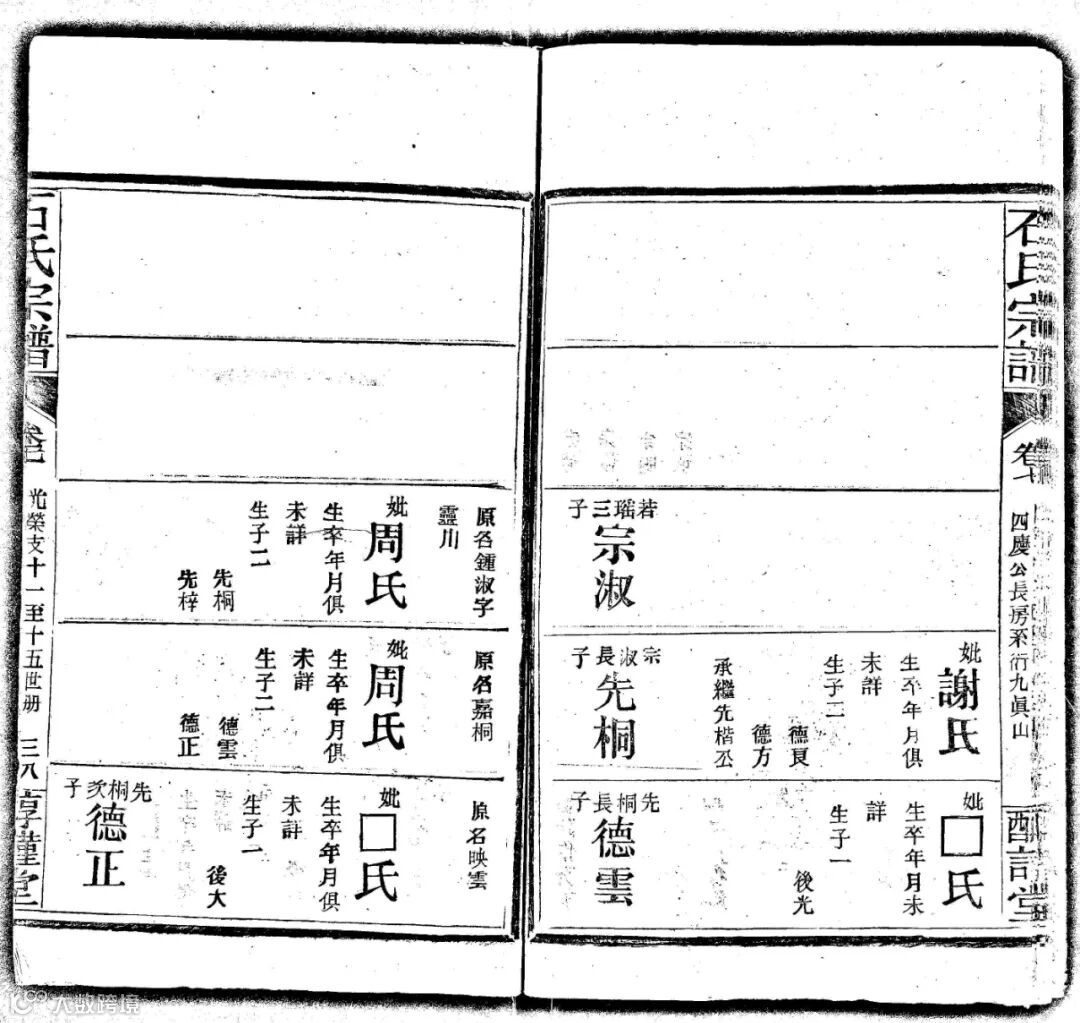 石氏宗譜
卷
四慶公長房系衍九眞山
若瑤三子
宗淑
妣謝氏
生卒年月俱
未詳
生子二
德良
德方
承繼先楷公
宗淑長子
先桐
妣□氏
生卒年月未
詳
生子一
後光
先桐長子
德雲
原名鍾淑字
靈川
妣周氏
生卒年月俱
未詳
生子二
先桐
先梓
原名嘉桐
妣周氏
生卒年月俱
未詳
生子二
德雲
德正
原名映雲
妣□氏
生卒年月俱
未詳
生子一
後大
先桐次子
德正
石氏宗譜
光榮支十一至十五世册
三八
大数跨境